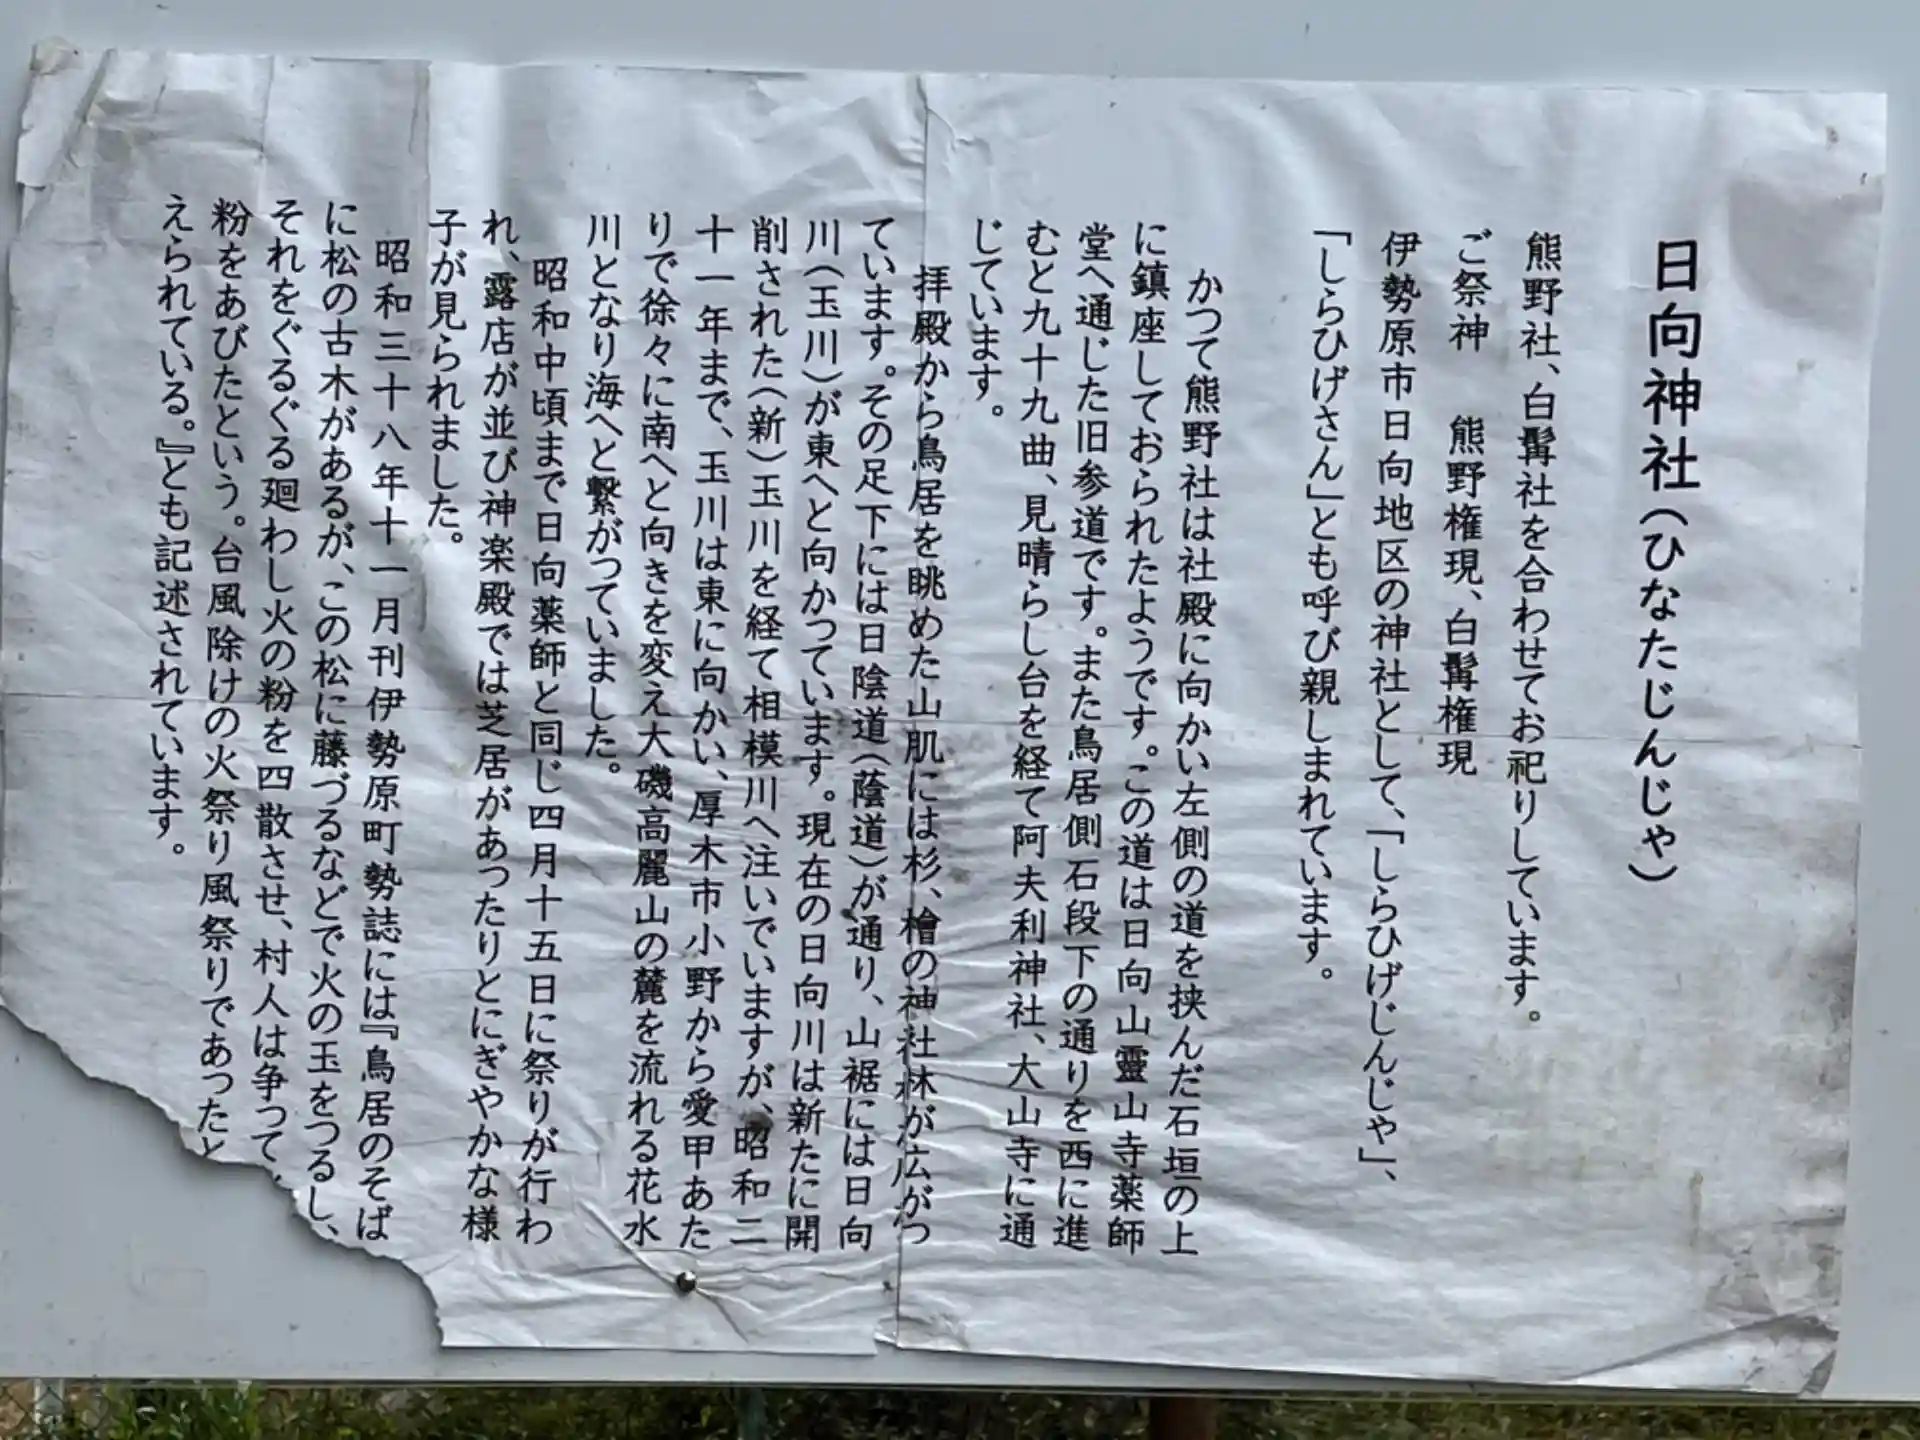 日向神社(ひなたじんじゃ)
熊野社、白髯社を合わせてお祀りしています。
ご祭神　熊野権現、白髯権現
伊勢原市日向地区の神社として、「しらひげじんじゃ」、
「しらひげさん」とも呼び親しまれています。
かつて熊野社は社殿に向かい左側の道を挟んだ石垣の上
に鎮座しておられたようです。この道は日向山靈山寺薬師
堂へ通じた旧参道です。また鳥居側石段下の通りを西に進
むと九十九曲、見晴らし台を経て阿夫利神社、大山寺に通
じています。
拝殿から鳥居を眺めた山肌には杉、檜の神社林が広がっ
ています。その足下には日陰道(蔭道)が通り、山裾には日向
川(玉川)が東へと向かっています。現在の日向川は新たに開
削された(新)玉川を経て相模川へ注いでいますが、昭和二
十一年まで、玉川は東に向かい、厚木市小野から愛甲あた
りで徐々に南へと向きを変え大磯高麗山の麓を流れる花水
川となり海へと繋がっていました。
昭和中頃まで日向薬師と同じ四月十五日に祭りが行わ
れ、露店が並び神楽殿では芝居があったりとにぎやかな様
子が見られました。
昭和三十八年十一月刊伊勢原町勢誌には『鳥居のそば
に松の古木があるが、この松に藤づるなどで火の玉をつるし、
それをぐるぐる廻わし火の粉を四散させ、村人は争って
粉をあびたという。台風除けの火祭り風祭りであったと
えられている。』とも記述されています。